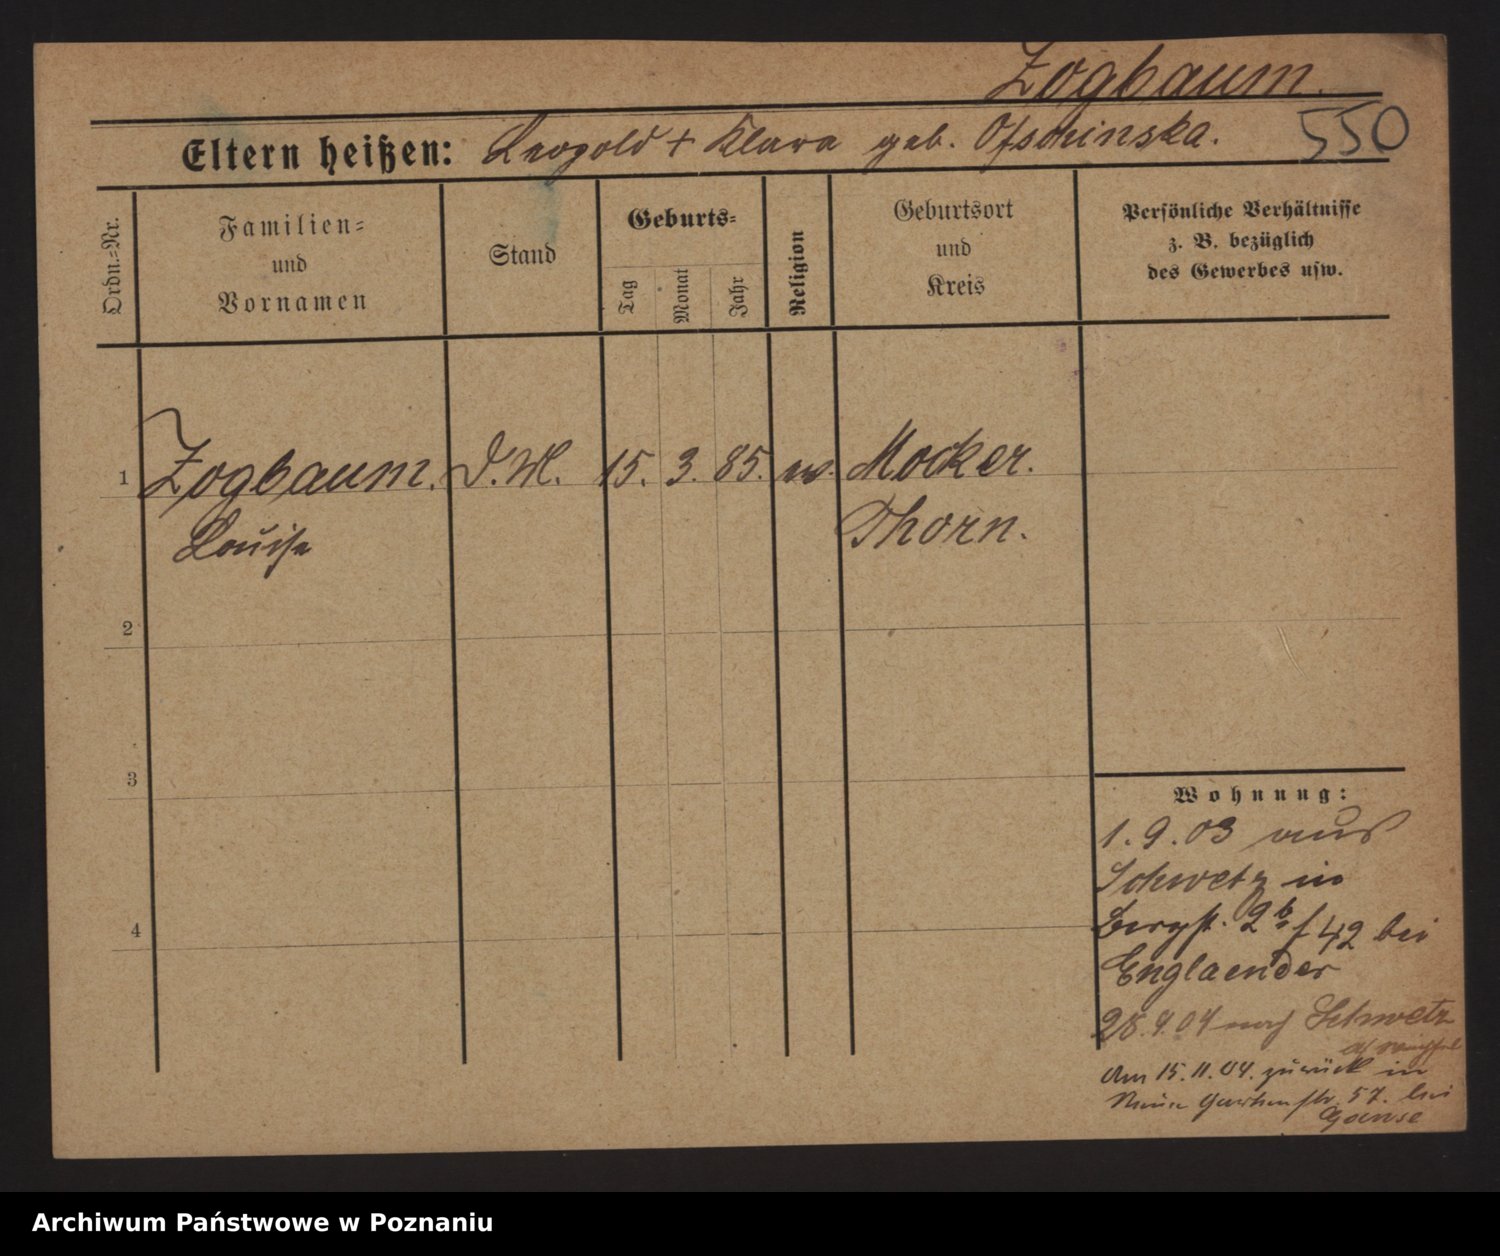 Zogbaum.
550
Eltern heißen: Leopold + Klara geb. Ofsminska.
Ordn.-Nr.
Familien-
und
Vornamen
Stand
Geburts-
Tag
Monat
Jahr
Religion
Geburtsort
und
Kreis
Persönliche Verhältnisse
z. B. bezüglich
des Gewerbes usw.
1 Zogbaum. D.M. 15. 3. 85. ev. Mocker.
Louise Thorn.
2
3
4
Wohnung:
1. 9. 03 aus
Schwetz in
Bergst. 2b f 42 bei
Englaender
28.4.04 nach Schwetz
Am 15.11.04. zurück in
Neue Gartenstr. 57. bei
Ganse
Archiwum Państwowe w Poznaniu